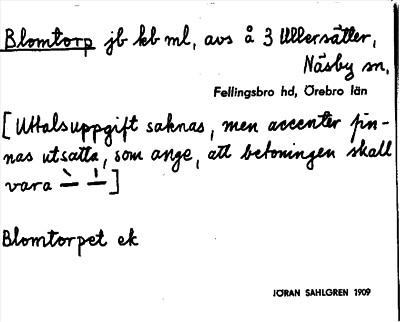 Blomtorp jb kb ml, avs å 3 Ullersätter,
Näsby sn,
Fellingsbro hd, Örebro län
[Uttalsuppgift saknas, men accenter fin-
nas utsatta, som ange, att betoningen skall
vara –̀ –́]
Blomtorpet ek
JÖRAN SAHLGREN 1909